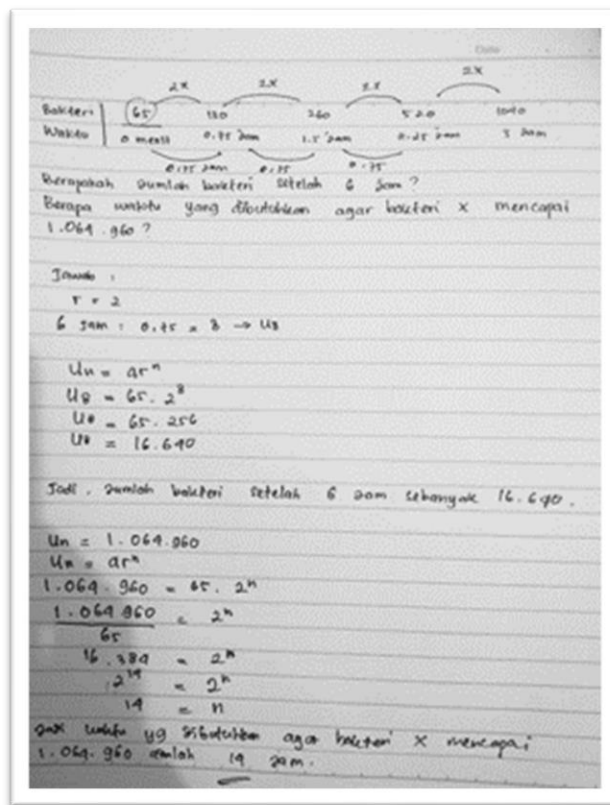 Date
2x 2x 2x 2x
Bakteri 65 130 260 520 1040
Waktu 0 menit 0.75 Jam 1.5 Jam 2.25 Jam 3 Jam
0.75 Jam 0.75 0.75
Berapakah Jumlah bakteri setelah 6 Jam ?
Berapa waktu yang dibutuhkan agar bakteri X mencapai
1.064.960 ?
Jawab :
r = 2
6 Jam : 0.75 = 8 → U8
Un = ar^n
U8 = 65 . 2^8
U8 = 65 . 256
U8 = 16.640
Jadi, Jumlah bakteri setelah 6 Jam sebanyak 16.640.
Un = 1.064.960
Un = ar^n
1.064.960 = 65 . 2^n
1.064.960 / 65 = 2^n
16.384 = 2^n
2^14 = 2^n
14 = n
Jadi waktu yg dibutuhkan agar bakteri X mencapai
1.064.960 adalah 14 Jam.